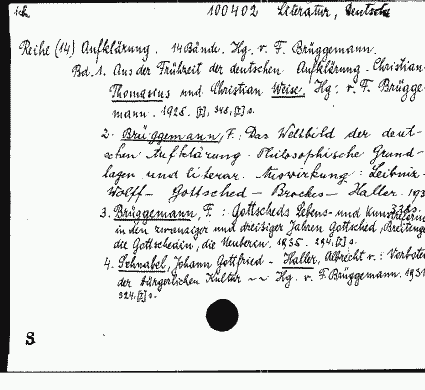 ich 100402 Literatur, Deutsche
Reihe (14) Aufklärung. 14 Bände. Hg. v. F. Brüggemann.
Bd. 1. Aus der Frühzeit der deutschen Aufklärung. Christian
Thomasius und Christian Weise. Hg. v. F. Brügge-
mann. 1928. [I], 348, [I] s.
2. Brüggemann, F.: Das Weltbild der deut-
schen Aufklärung. Philosophische Grund-
lagen und literar. Auswirkung: Leibniz-
Wolff - Gottsched - Brockes - Haller. 193
3. Brüggemann, F.: Gottscheds Lebens- und Kunstreform
in den zwanziger und dreissiger Jahren Gottsched, Breitinger
die Gottschedin, die Neuberin. 1935. 294, [I] s.
4. Schnabel, Johann Gottfried - Haller, Albrecht v.: Vorboten
der bürgerlichen Kultur -- Hg. v. F. Brüggemann. 1931
324, [I] s.
S